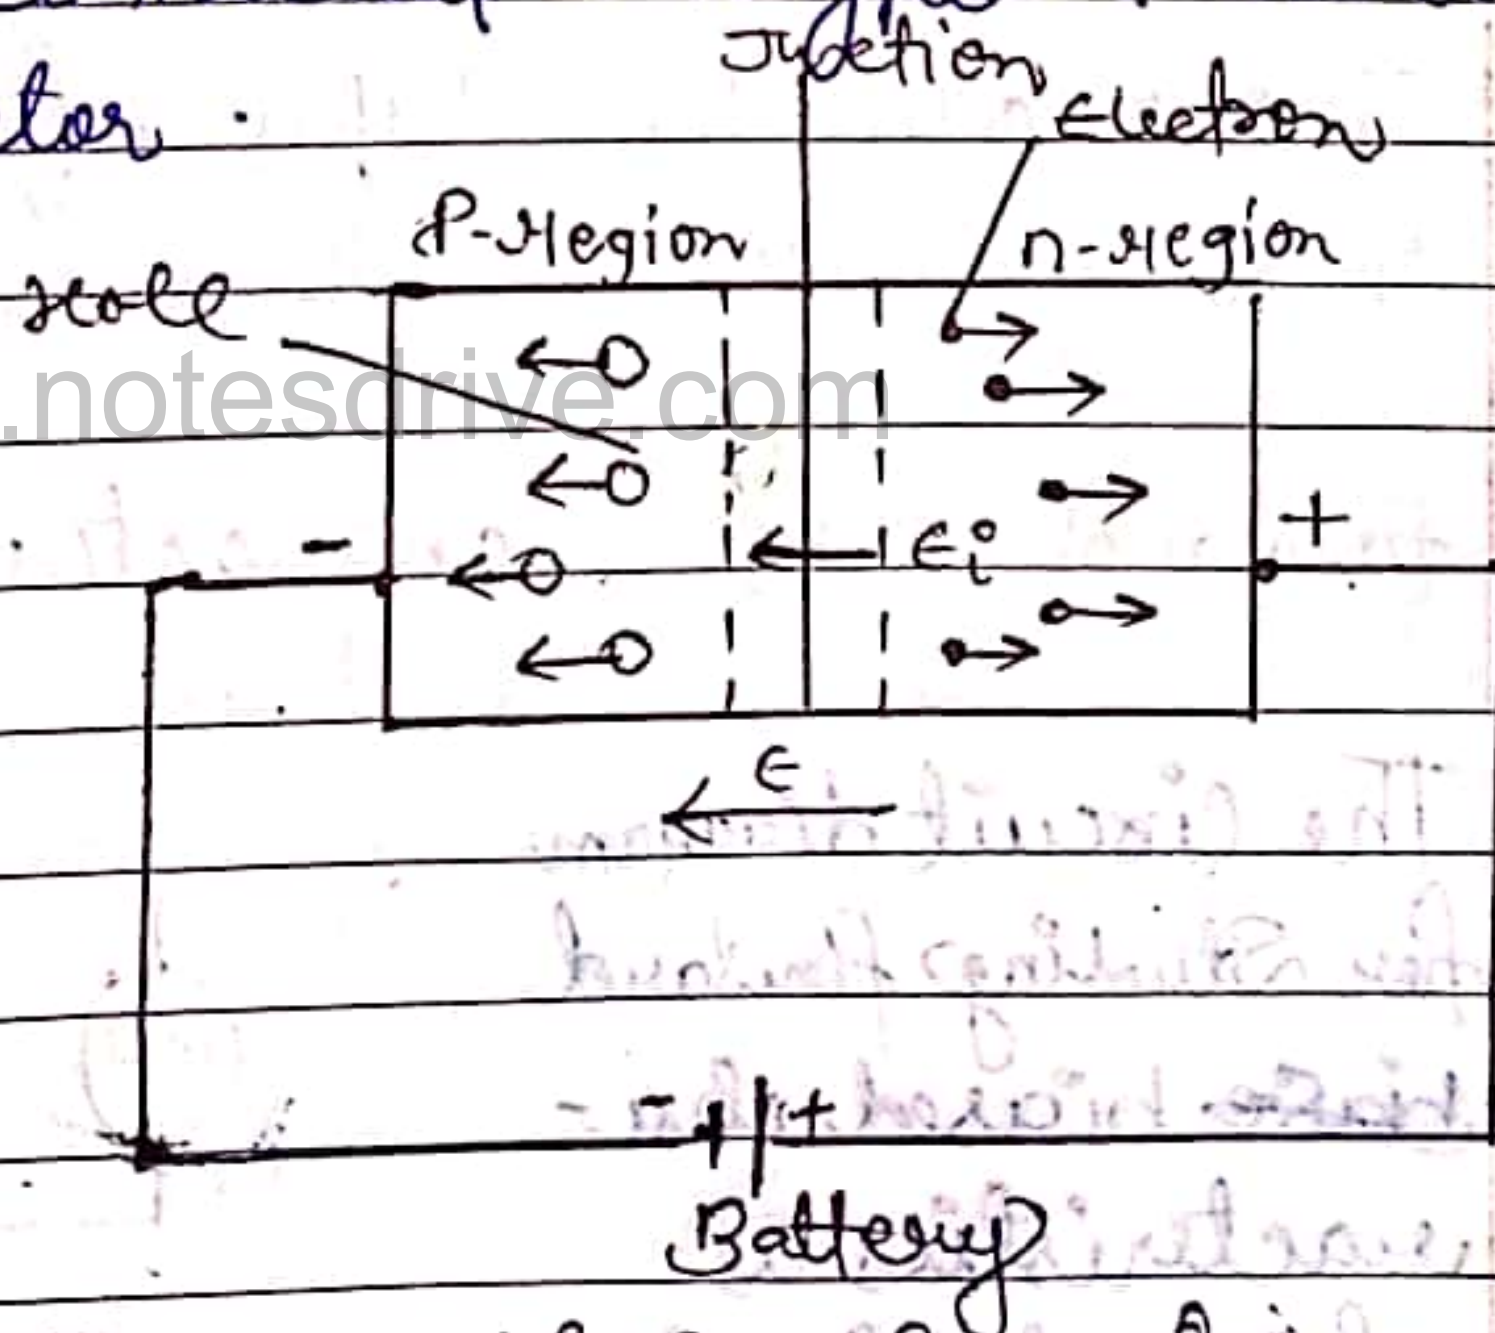 Juction
tor.
Electron
P-region
n-region
Hole
.notesdrive.com
-
Ei
+
E
- +
Battery